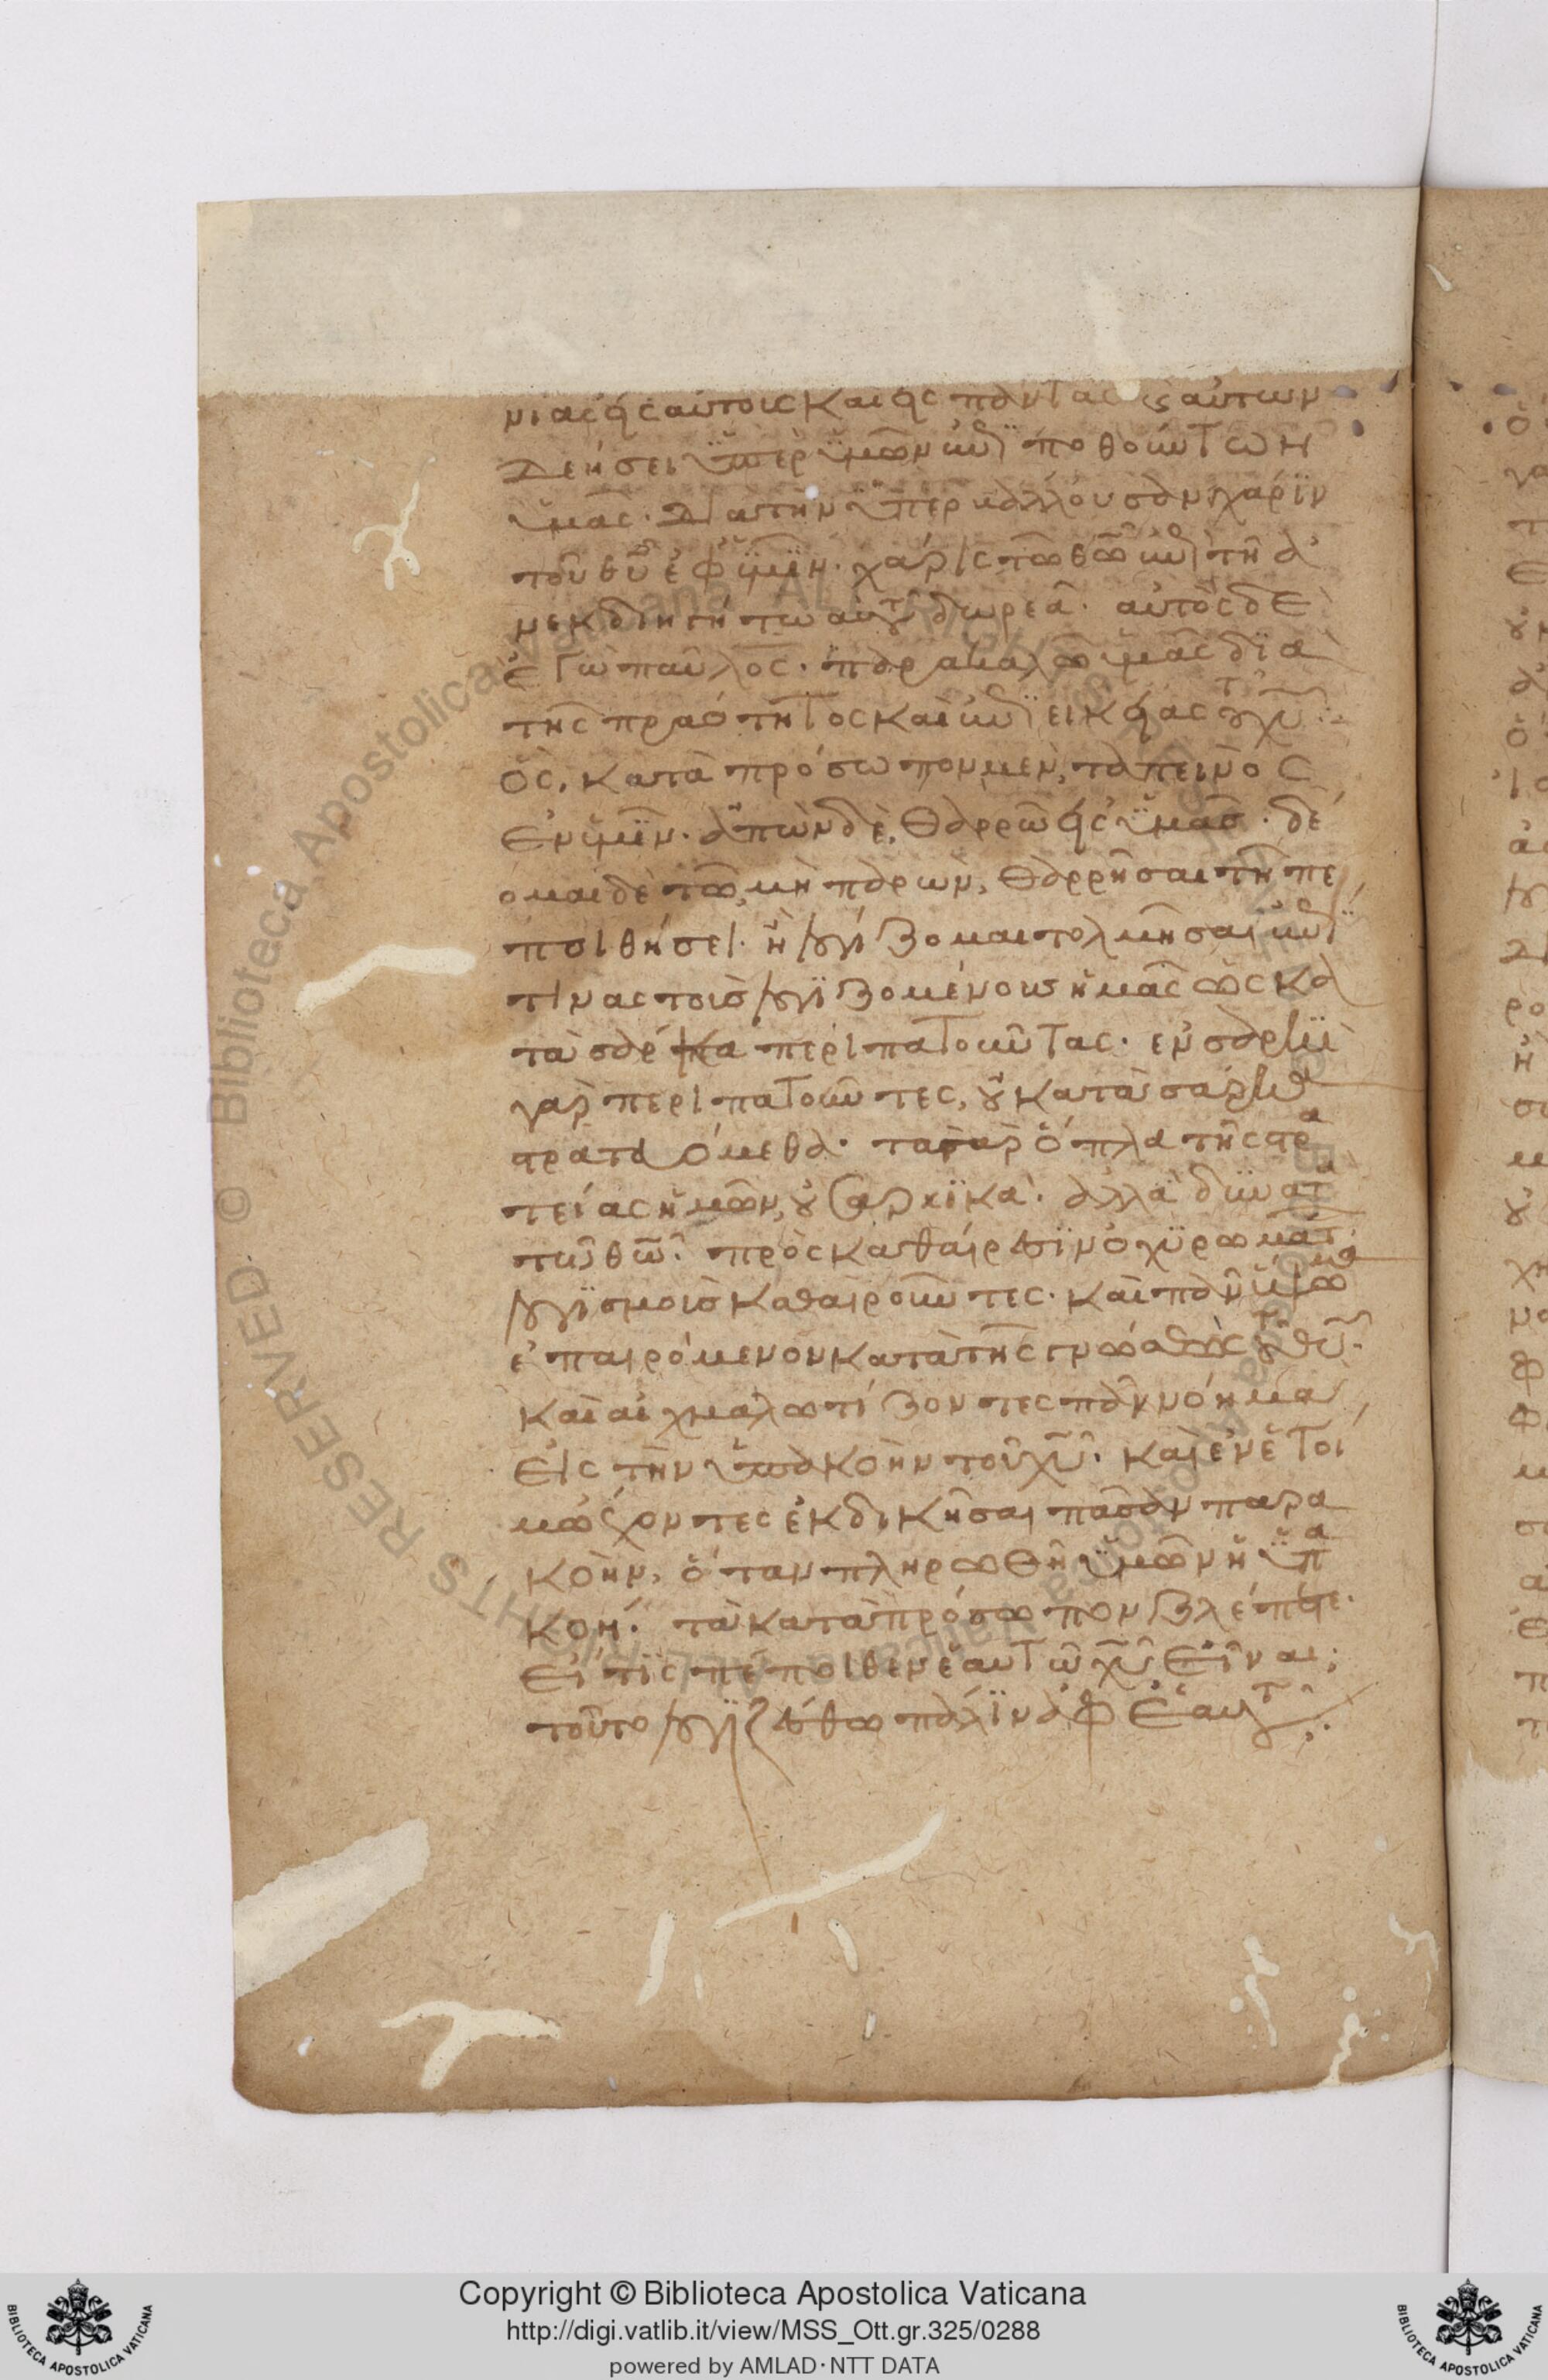 νιας εἰς αὐτοις καὶ εἰς πάντας ϛ αὐτων
δεήσει ὑπὲρ ὑμῶν ἐπιποθούντων
ὑμᾶς. διὰ τὴν ὑπερβάλλουσαν χάριν
τοῦ θῦ ἐφ ὑμῖν. χάρις τῶ θῶ ἐπὶ τῆ ἀ
νεκδιηγήτω αὐτοῦ δωρεᾶ. αὐτὸς δὲ
ἐγὼ παῦλος. παρακαλῶ ὑμᾶς διὰ
τῆς πραότητος καὶ ἐπιεικείας τοῦ χῦ.
ὃς, κατὰ πρόσωπον μὲν, ταπεινὸς
ἐν ὑμῖν. ἀπὼν δὲ, θαρρῶ εἰς ὑμᾶς. δέ
ομαι δὲ τῶ, μὴ παρὼν, θαρρῆσαι τῆ πε
ποιθήσει. ἣ λογίζομαι τολμῆσαι ἐπί
τινας τοὺς λογιζομένους ἡμᾶς ὡς κα
τὰ σάρκα περιπατοῦντας. ἐν σαρκὶ
γὰρ περιπατοῦντες, οὐ κατὰ σάρκα
στρατευόμεθα. τὰ γὰρ ὅπλα τῆς στρα
τείας ἡμῶν, οὐ σαρκικὰ. ἀλλὰ δυνατὰ
τῶ θῶ. πρὸς καθαίρεσιν ὀχυρωμάτ
λογισμοὺς καθαιροῦντες. καὶ πᾶν ὕψωμα
ἐπαιρόμενον κατὰ τῆς γνώσεως τοῦ θῦ.
καὶ αἰχμαλωτίζοντες πᾶν νόημα
εἰς τὴν ὑπακοὴν τοῦ χῦ. καὶ ἐν ἑτοί
μω ἔχοντες ἐκδικῆσαι πᾶσαν παρα
κοὴν, ὅταν πληρωθῆ ὑμῶν ἡ ὑπα
κοή. τὰ κατὰ πρόσωπον βλέπετε.
εἴ τις πέποιθεν ἑαυτῶ χῦ εἶναι,
τοῦτο λογιζέσθω πάλιν ἀφ ἑαυτοῦ.
Copyright © Biblioteca Apostolica Vaticana
http://digi.vatlib.it/view/MSS_Ott.gr.325/0288
powered by AMLAD·NTT DATA